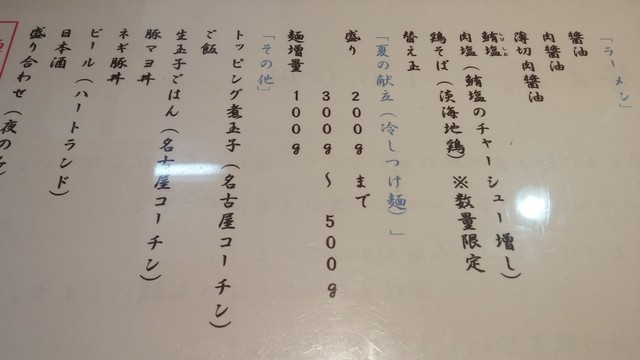 「ラーメン」
醤油
肉醤油
薄切肉醤油
鮪塩
肉塩(鮪塩のチャーシュー増し)
鶏そば(淡海地鶏)※数量限定
替え玉
「夏の献立(冷しつけ麺)」
盛り 200g まで
300g ~ 500g
麺増量 100g
「その他」
トッピング煮玉子(名古屋コーチン)
ご飯
生玉子ごはん(名古屋コーチン)
豚マヨ丼
ネギ豚丼
ビール(ハートランド)
日本酒
盛り合わせ(夜のみ)